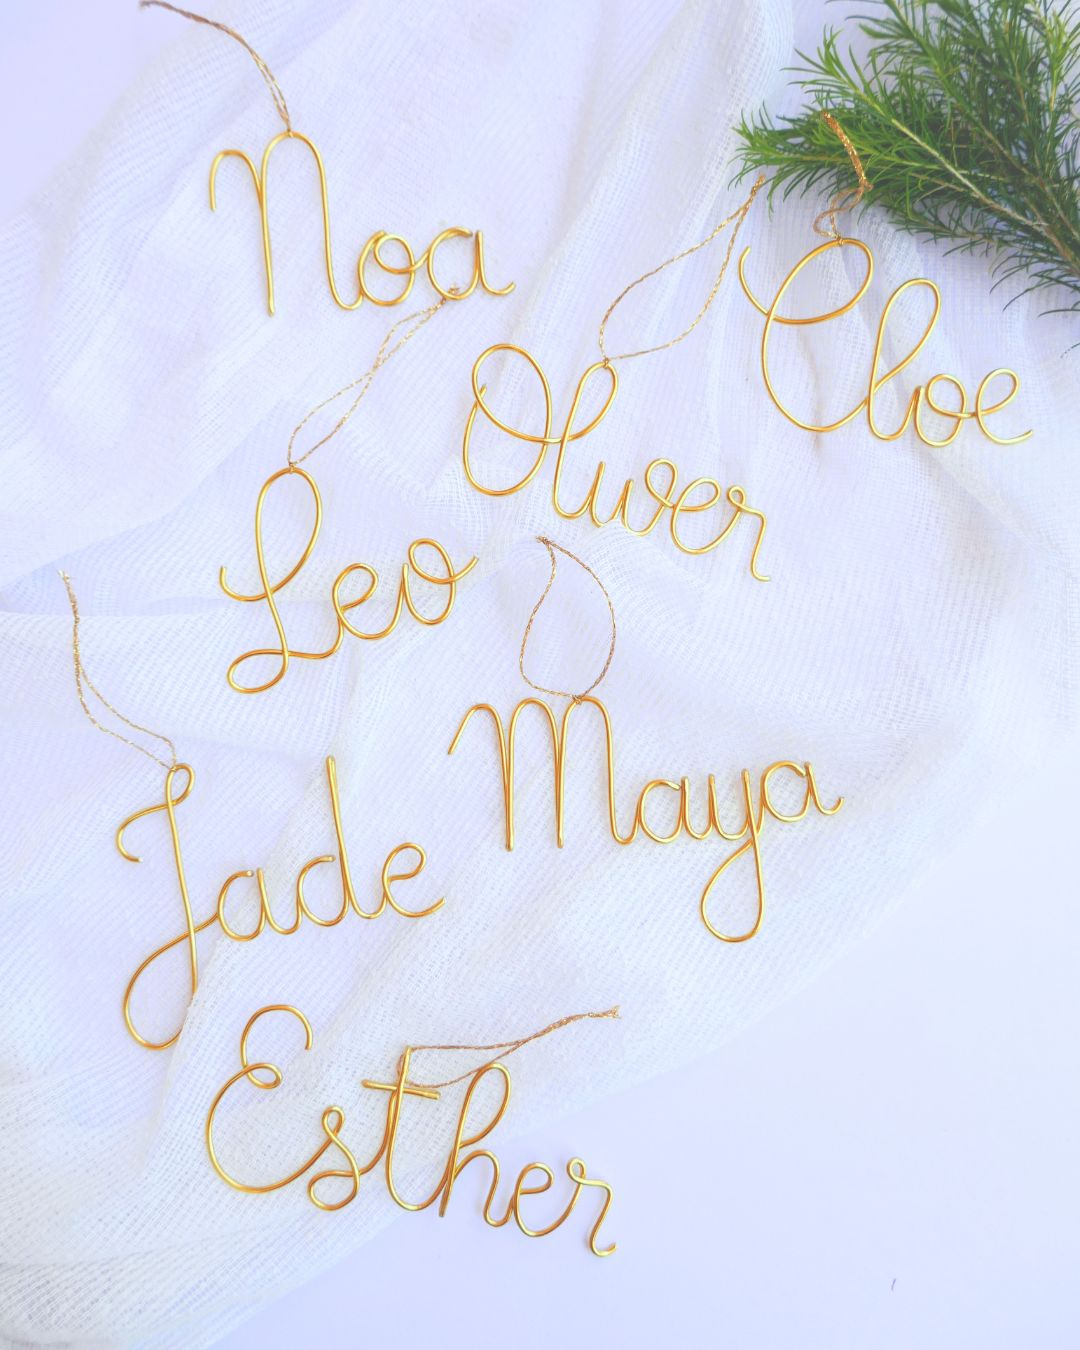 Noa
Cloe
Oliver
Leo
Maya
Jade
Esther